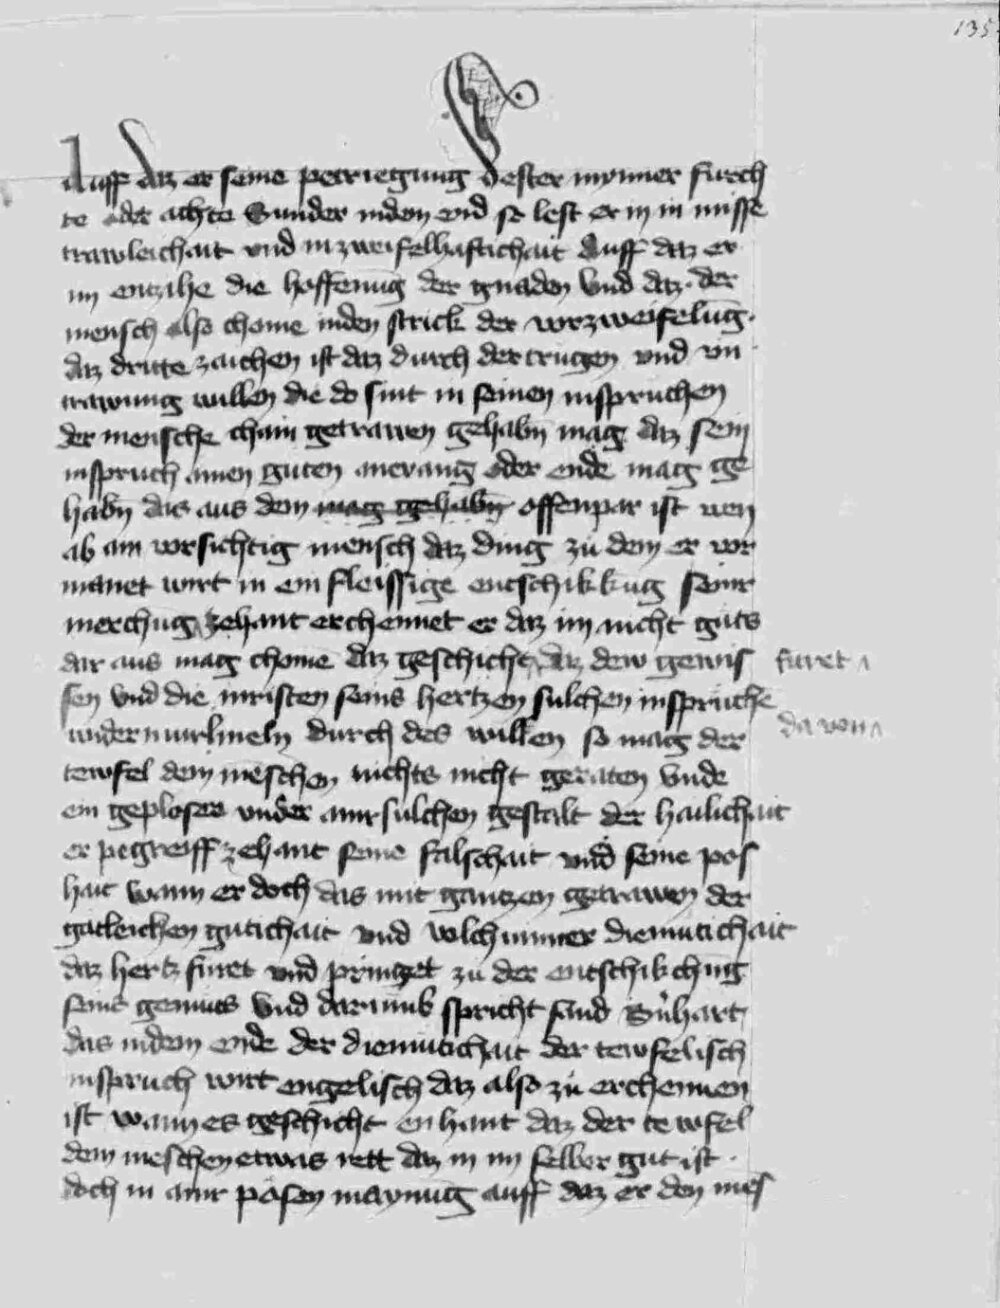 135
Auff daz er seine petriegung dester mynner furch
te oder achte Sunder inden end so lest er in in misse
trawleichait vnd in zweifelhaftichait Auff daz er
im entzihe die hoffenūg der gnaden Vnd daz der
mensch also chome inden strick der vorzweifelūg.
daz dritte zaichen ist daz durch der trugen vnd vn
trawung willen die do sint in seinen insprüchen
der mensche chain getrawen gehabn̄ mag daz sein
inspruch ainen guten anevang oder ende mag ge
habn̄ das aus dem mag gehabn̄ offenpar ist wen
ab ain vorsichtig mensch daz ding zu dem er vor
manet wirt in ein fleissige entschikkūg seinr
merchūg zehant erchennet er daz im nicht guts
dar aus mag chomē daz geschicht daz dew gewis furet
sen vnd die inristen seins hertzen sulchen insprüche
widermurmeln durch des willen so mag der da von
tewfel dem mēschen nichts nicht geraten vnde
ein geploser vnder ainr sulchen gestalt der hailichait
er pegreiff zehant seine falschait vnd seine pos
hait wann er doch das mit gantzen getrawen der
gotleichen gutichait vnd volchumner diemutichait
daz hertz furet vnd pringet zu der entschikchūg
seins gemutes Vnd darumb spricht sand B̄nhart
das indem ende der diemutichait der tewfelisch
inspruch wirt engelisch daz also zu erchennen
ist wann es geschicht enhant daz der tewfel
dem meschen etwas rett daz in im selber gut ist.
doch in ainr posen maynūg auff daz er den mēs